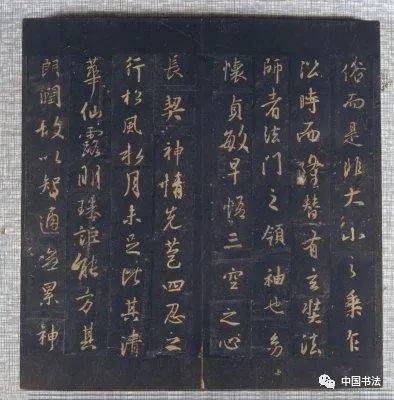 俗而是非大小之乘乍
沿時而隆替有玄奘法
師者法門之領袖也幼
懷貞敏早悟三空之心
長契神情先苞四忍之
行松風水月未足比其清
華仙露明珠詎能方其
朗潤故以智通無累神
中国书法